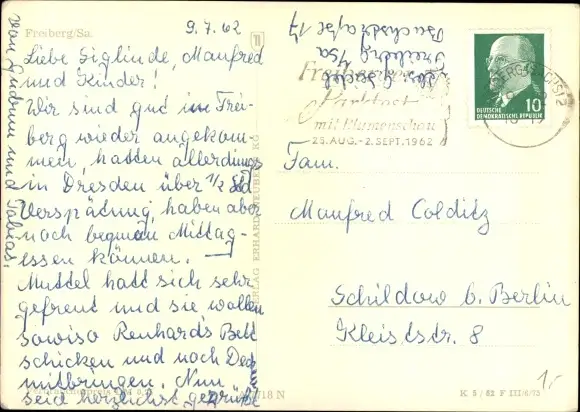 Freiberg/Sa.
9.7.62
Liebe Siglinde, Manfred
und Kinder!
Wir sind gut in Frei-
berg wieder angekom-
men, hatten allerdings
in Dresden über 1/2 Std
Verspätung, haben aber
noch bequem Mittag-
essen können. —
Muttel hatt sich sehr
gefreut und sie wollen
sowiso Renhard's Bett
schicken und noch
mitbringen. Nun
seid herzlichst gegrüßt
von
und Tobias.
Freiberg/Sa
17
mit Blumenschau
25. AUG. - 2. SEPT. 1962
DEUTSCHE
DEMOKRATISCHE REPUBLIK
10
Fam.
Manfred Colditz
Schildow b. Berlin
Kleiststr. 8
VERLAG ERHARD NEUBERT KG
/18 N
K 5/62 F
1,-